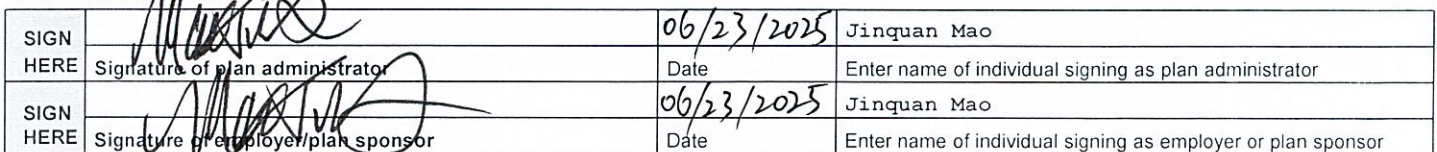 SIGN HERE 06/23/2025 Jinquan Mao
Signature of plan administrator Date Enter name of individual signing as plan administrator
SIGN HERE 06/23/2025 Jinquan Mao
Signature of employer/plan sponsor Date Enter name of individual signing as employer or plan sponsor